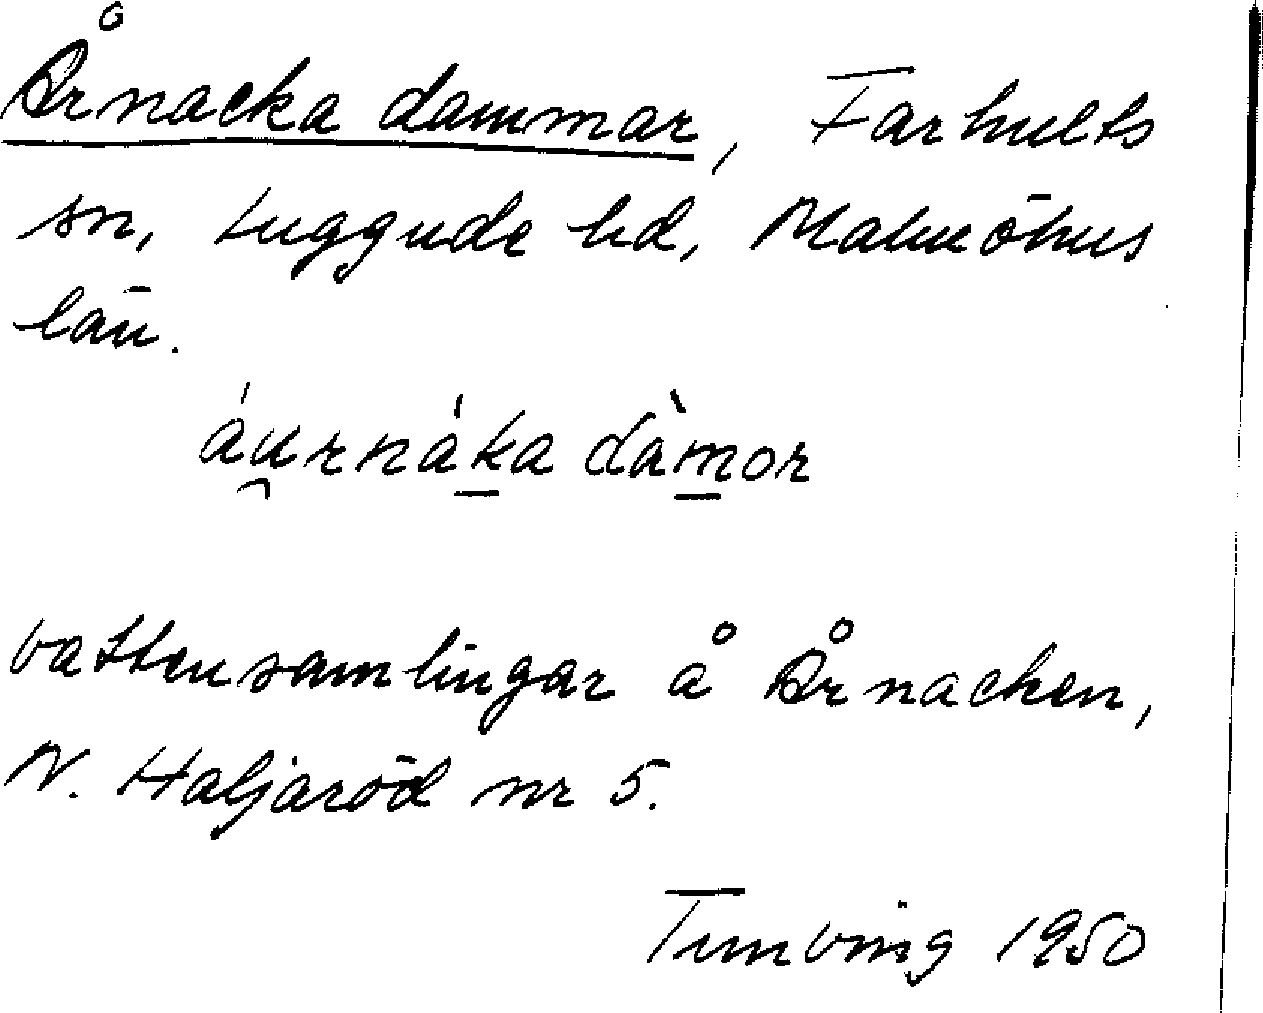 Årnacka dammar, Farhults
sn, Luggude hd, Malmöhus
län.
áu̯rnák̲a dàm̲or
vattensamlingar å Årnacken,
N. Haljaröd nr 5.
1950